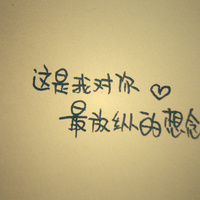 这是我对你♡
最放纵的想念